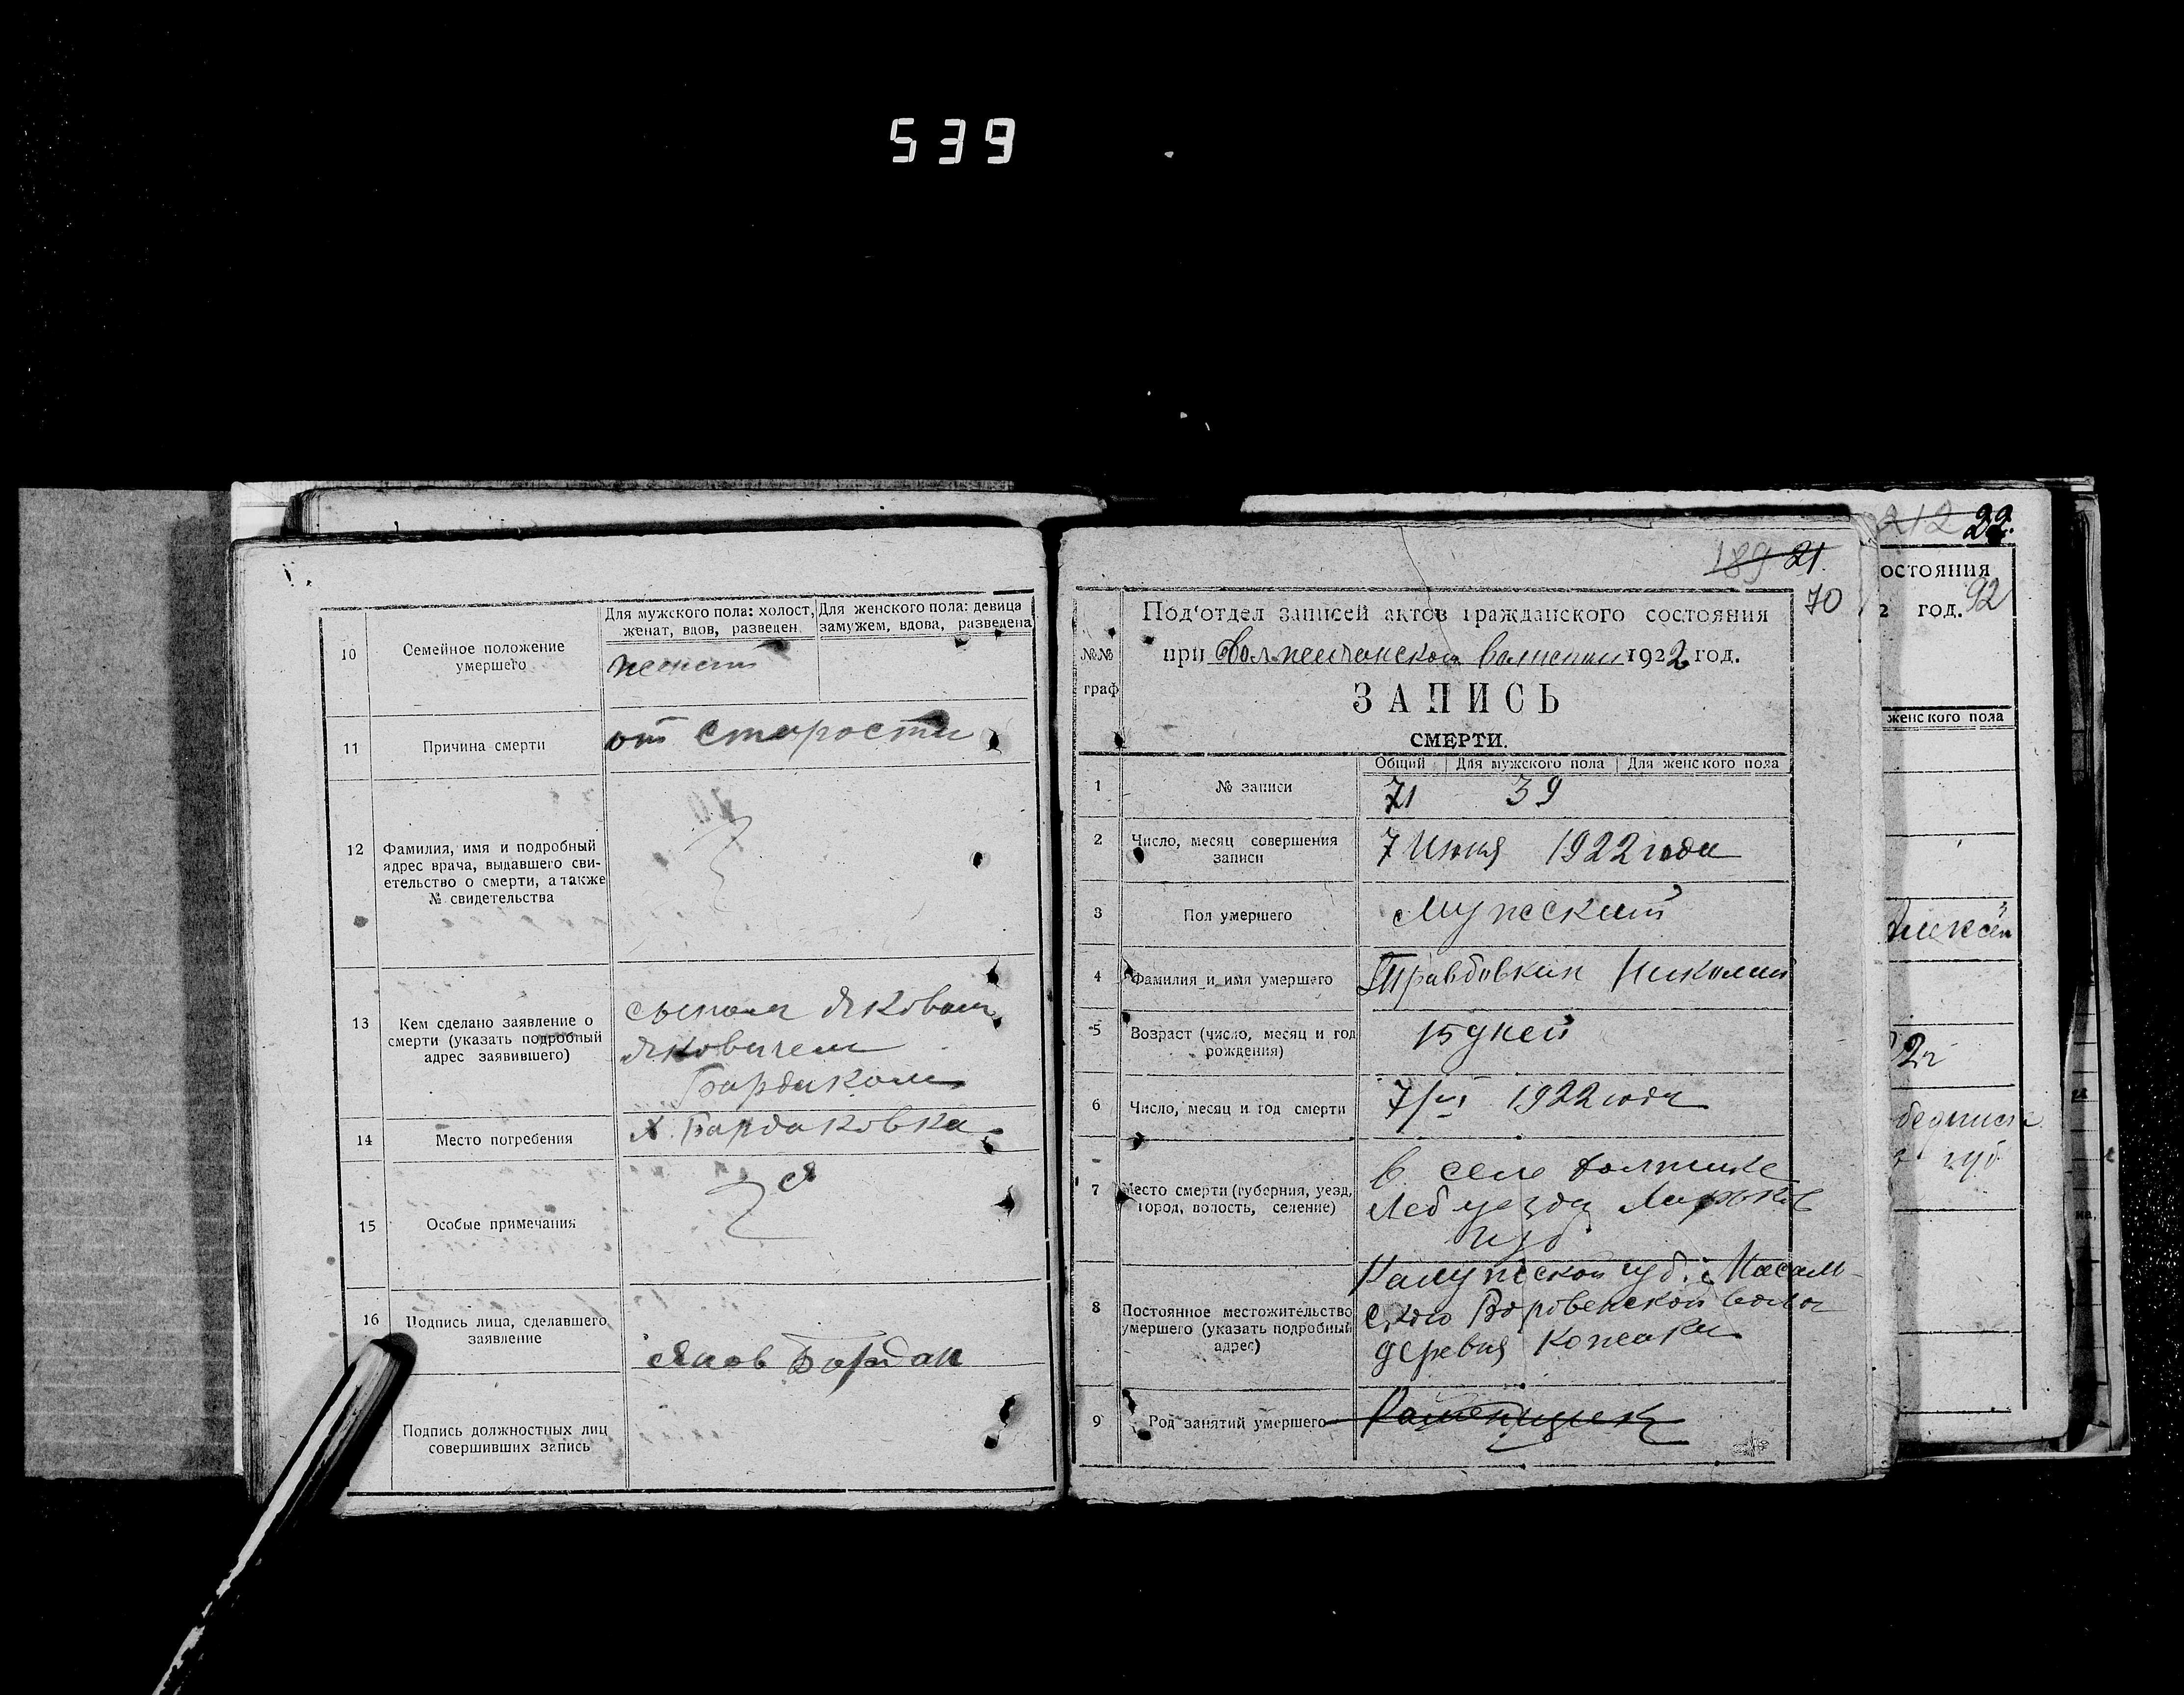 539
10
Семейное положение
умершего
Для мужского пола: холост,
женат, вдов, разведен.
Для женского пола: девица
замужем, вдова, разведена
женат
11
Причина смерти
от старости
12
Фамилия, имя и подробный
адрес врача, выдавшего сви-
етельство о смерти, а также
№ свидетельства
13
Кем сделано заявление о
смерти (указать подробный
адрес заявившего)
сыном Яковом
Яковичем
Бардаком
14
Место погребения
х. Бардаковка
15
Особые примечания
16
Подпись лица, сделавшего
заявление
Яков Бардак
Подпись должностных лиц
совершивших запись
189 21.
70
Под'отдел записей актов гражданского состояния
№№
граф
при волости 1922 год.
ЗАПИСЬ
СМЕРТИ.
Общий Для мужского пола Для женского пола
1
№ записи
71 39
2
Число, месяц совершения
записи
7 Июня 1922 года
3
Пол умершего
Мужской
4
Фамилия и имя умершего
Николай
5
Возраст (число, месяц и год
рождения)
15 дней
6
Число, месяц и год смерти
7/VI 1922 года
7
Место смерти (губерния, уезд,
город, волость, селение)
в селе
Леб уезда Харьков
губ.
8
Постоянное местожительство
умершего (указать подробный
адрес)
Калужской губ. Масаль-
ского волос
деревня
9
Род занятий умершего
212 22.
остояния
2 год. 92
женского пола
губ